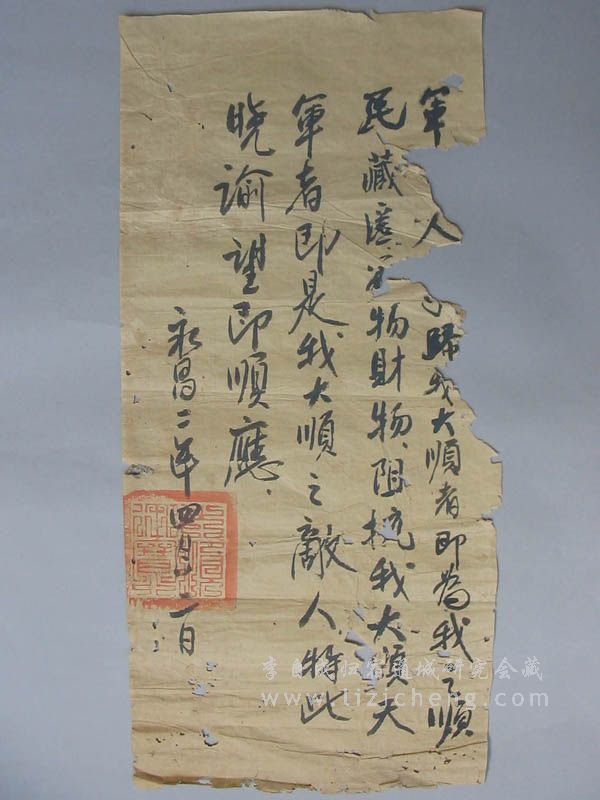 軍人歸我大順者即為我順
民藏匿物財物、阻抗我大順天
軍者即是我大順之敵人特此
晓諭望即順應
永昌二年四月十二日
李自成归宿通城研究会藏
www.lizicheng.com